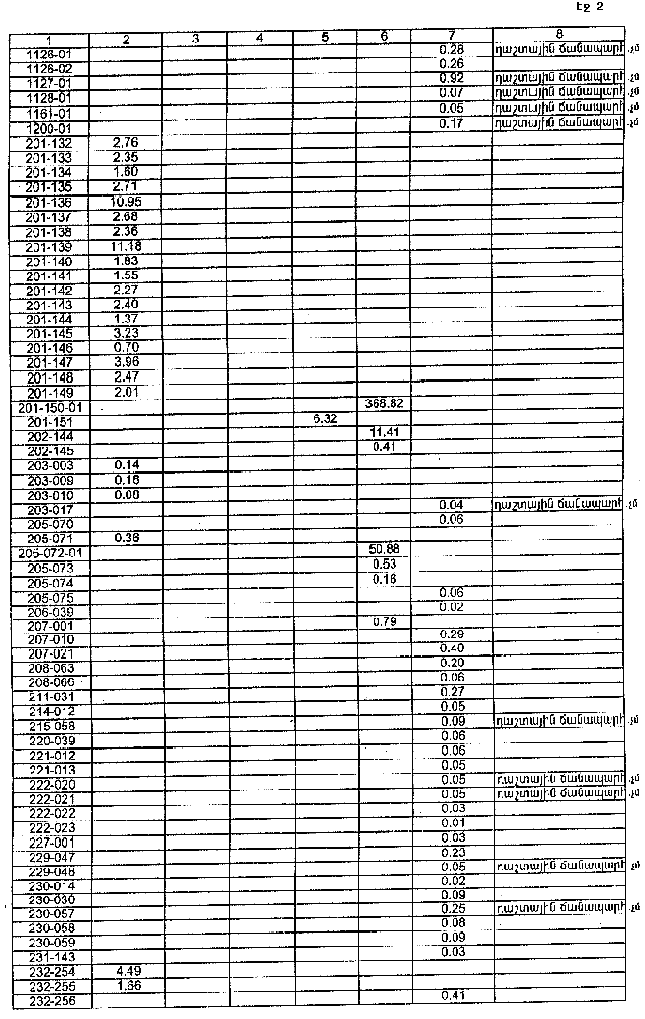 Էջ 2
1 2 3 4 5 6 7 8
1126-01 0.28 դաշտային ճանապարհ
1126-02 0.26
1127-01 0.92 դաշտային ճանապարհ
1128-01 0.07 դաշտային ճանապարհ
1161-01 0.05 դաշտային ճանապարհ
1200-01 0.17 դաշտային ճանապարհ
201-132 2.76
201-133 2.35
201-134 1.60
201-135 2.71
201-136 10.95
201-137 2.68
201-138 2.36
201-139 11.18
201-140 1.83
201-141 1.55
201-142 2.27
201-143 2.40
201-144 1.37
201-145 3.23
201-146 0.70
201-147 3.96
201-148 2.47
201-149 2.01
201-150-01 368.82
201-151 6.32
202-144 11.41
202-145 0.41
203-003 0.14
203-009 0.16
203-010 0.00
203-017 0.04 դաշտային ճանապարհ
205-070 0.06
205-071 0.36
205-072-01 50.88
205-073 0.53
205-074 0.16
205-075 0.06
206-039 0.02
207-001 0.79
207-010 0.29
207-021 0.40
208-063 0.20
208-066 0.06
211-031 0.27
214-012 0.05
215-058 0.09 դաշտային ճանապարհ
220-039 0.06
221-012 0.06
221-013 0.05
222-020 0.05 դաշտային ճանապարհ
222-021 0.05 դաշտային ճանապարհ
222-022 0.03
222-023 0.01
227-001 0.03
229-047 0.23
229-048 0.05 դաշտային ճանապարհ
230-014 0.02
230-030 0.09
230-057 0.25 դաշտային ճանապարհ
230-058 0.08
230-059 0.09
231-143 0.03
232-254 4.49
232-255 1.66
232-256 0.41